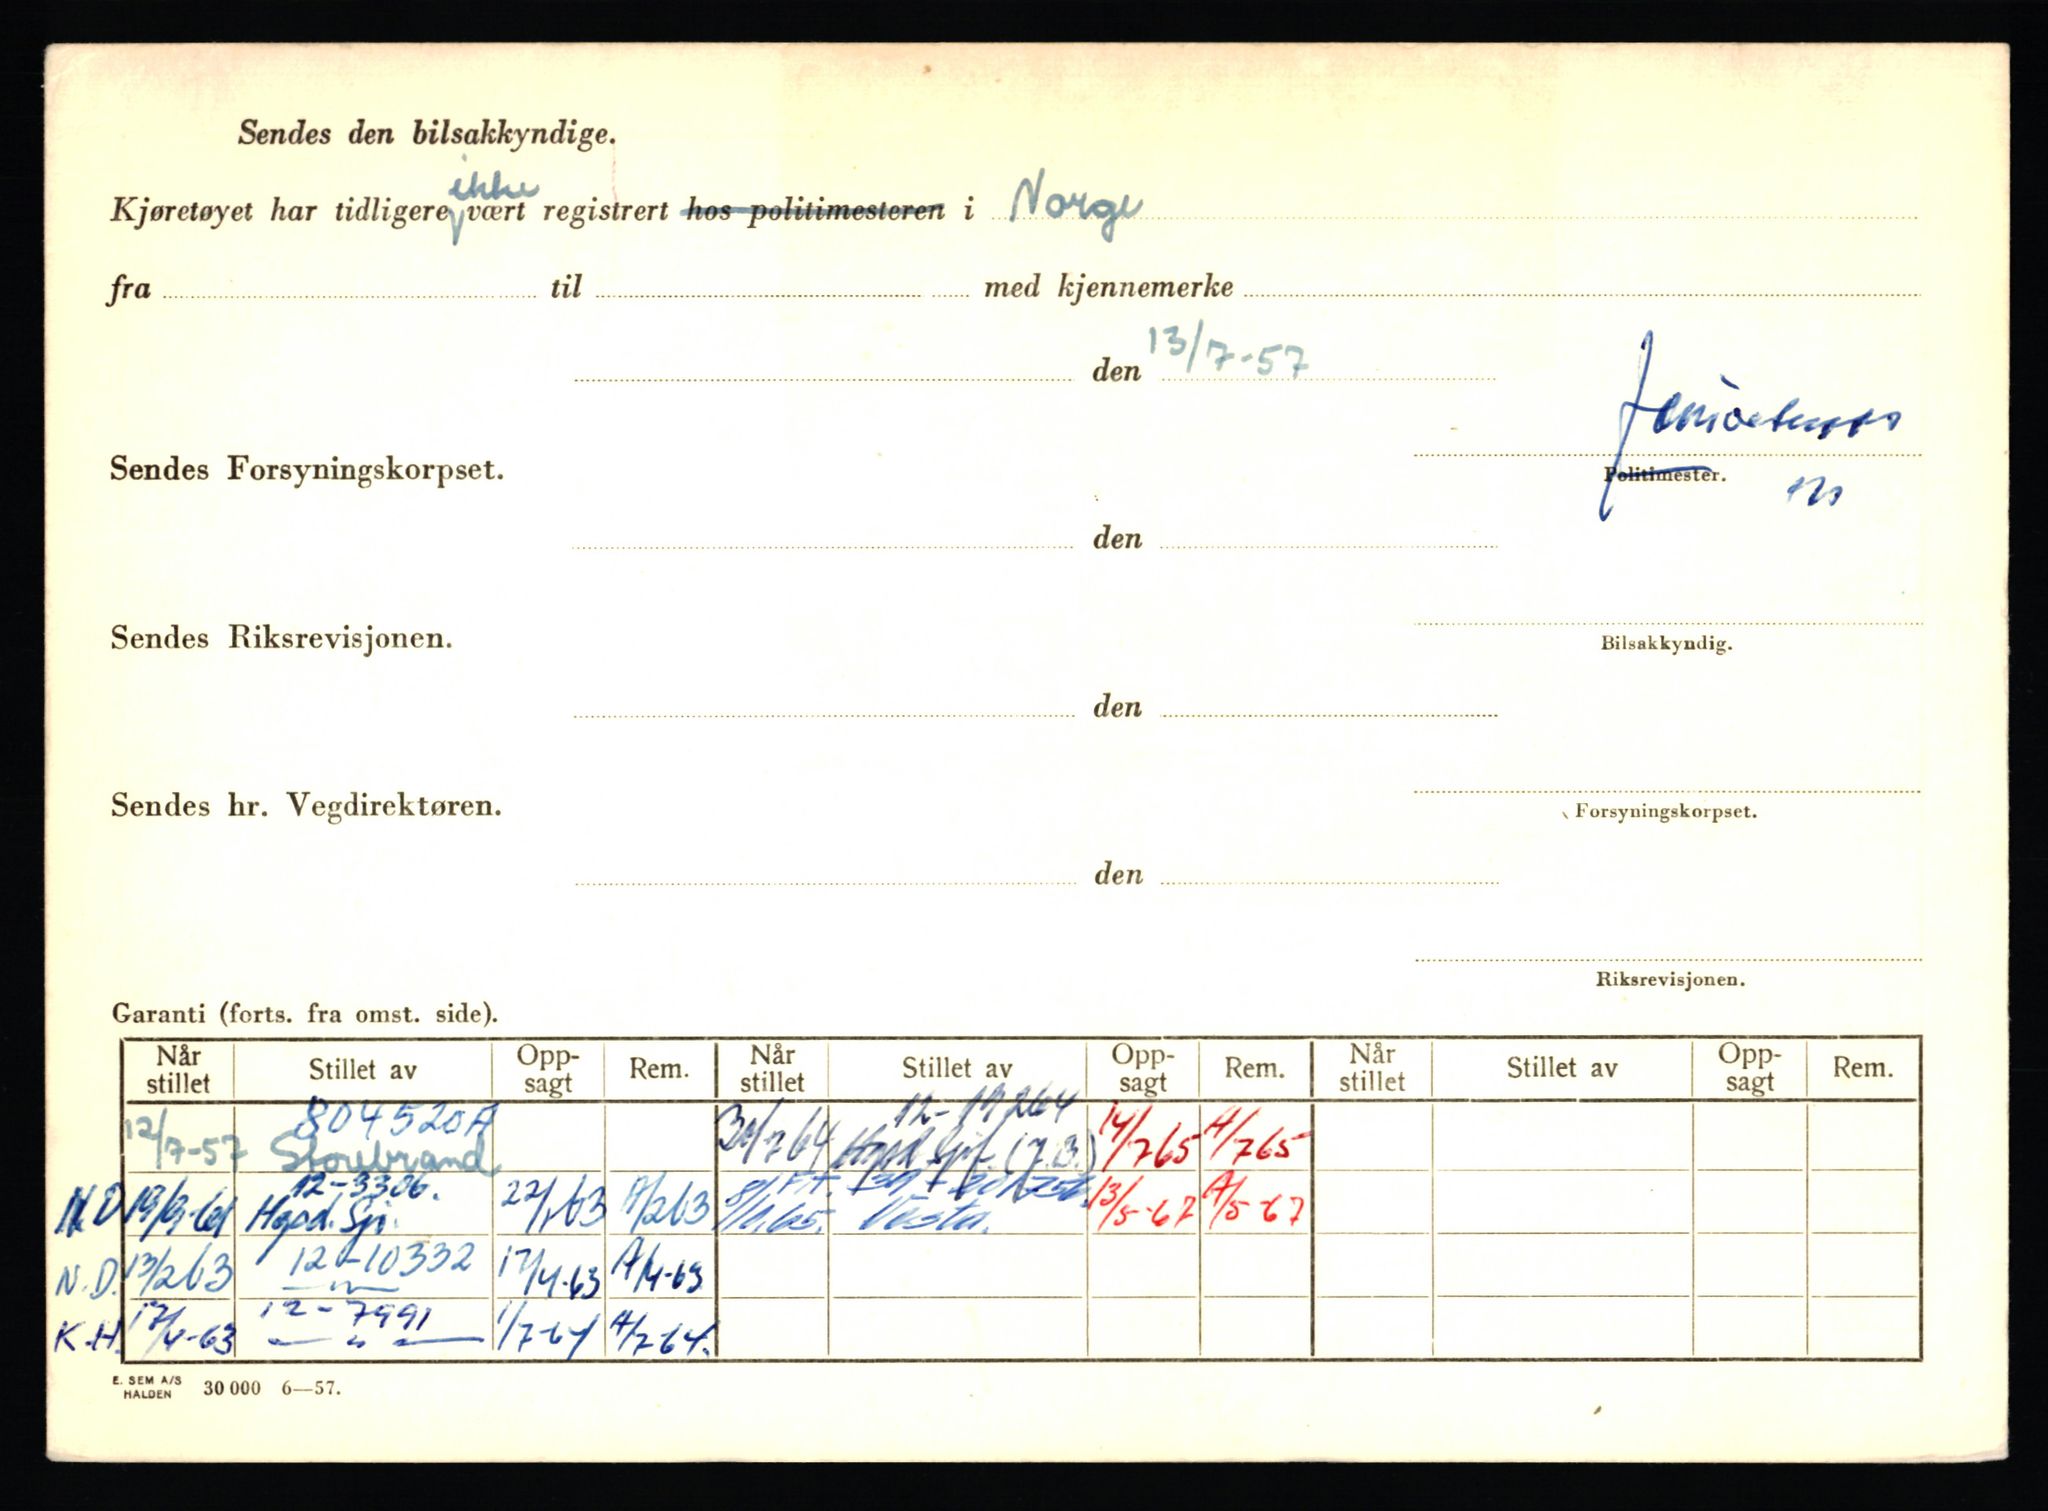 Sendes den bilsakkyndige.
Kjøretøyet har tidligere ikke vært registrert hos politimesteren i Norge
fra til med kjennemerke
den 13/7-57
Sendes Forsyningskorpset.
Politimester.
den
Sendes Riksrevisjonen.
Bilsakkyndig.
den
Sendes hr. Vegdirektøren.
Forsyningskorpset.
den
Riksrevisjonen.
Garanti (forts. fra omst. side).
Når stillet Stillet av Opp-sagt Rem. Når stillet Stillet av Opp-sagt Rem. Når stillet Stillet av Opp-sagt Rem.
12/7-57 804520A Storebrand 30/7 64 12-19264 Hgsd Sjf. (J.B.) 14/7 65 A/7 65
N.D. 12-3306. Hgsd. Sjf. 22/1 63 A/2 63 Vesta. 13/5-67 A/5-67
N.D. 13/2 63 12-10332 — " — 17/4-63 A/4-63
K.H. 17/4-63 12-7991 — " — 1/7-64 A/7-64.
E. SEM A/S HALDEN 30 000 6—57.